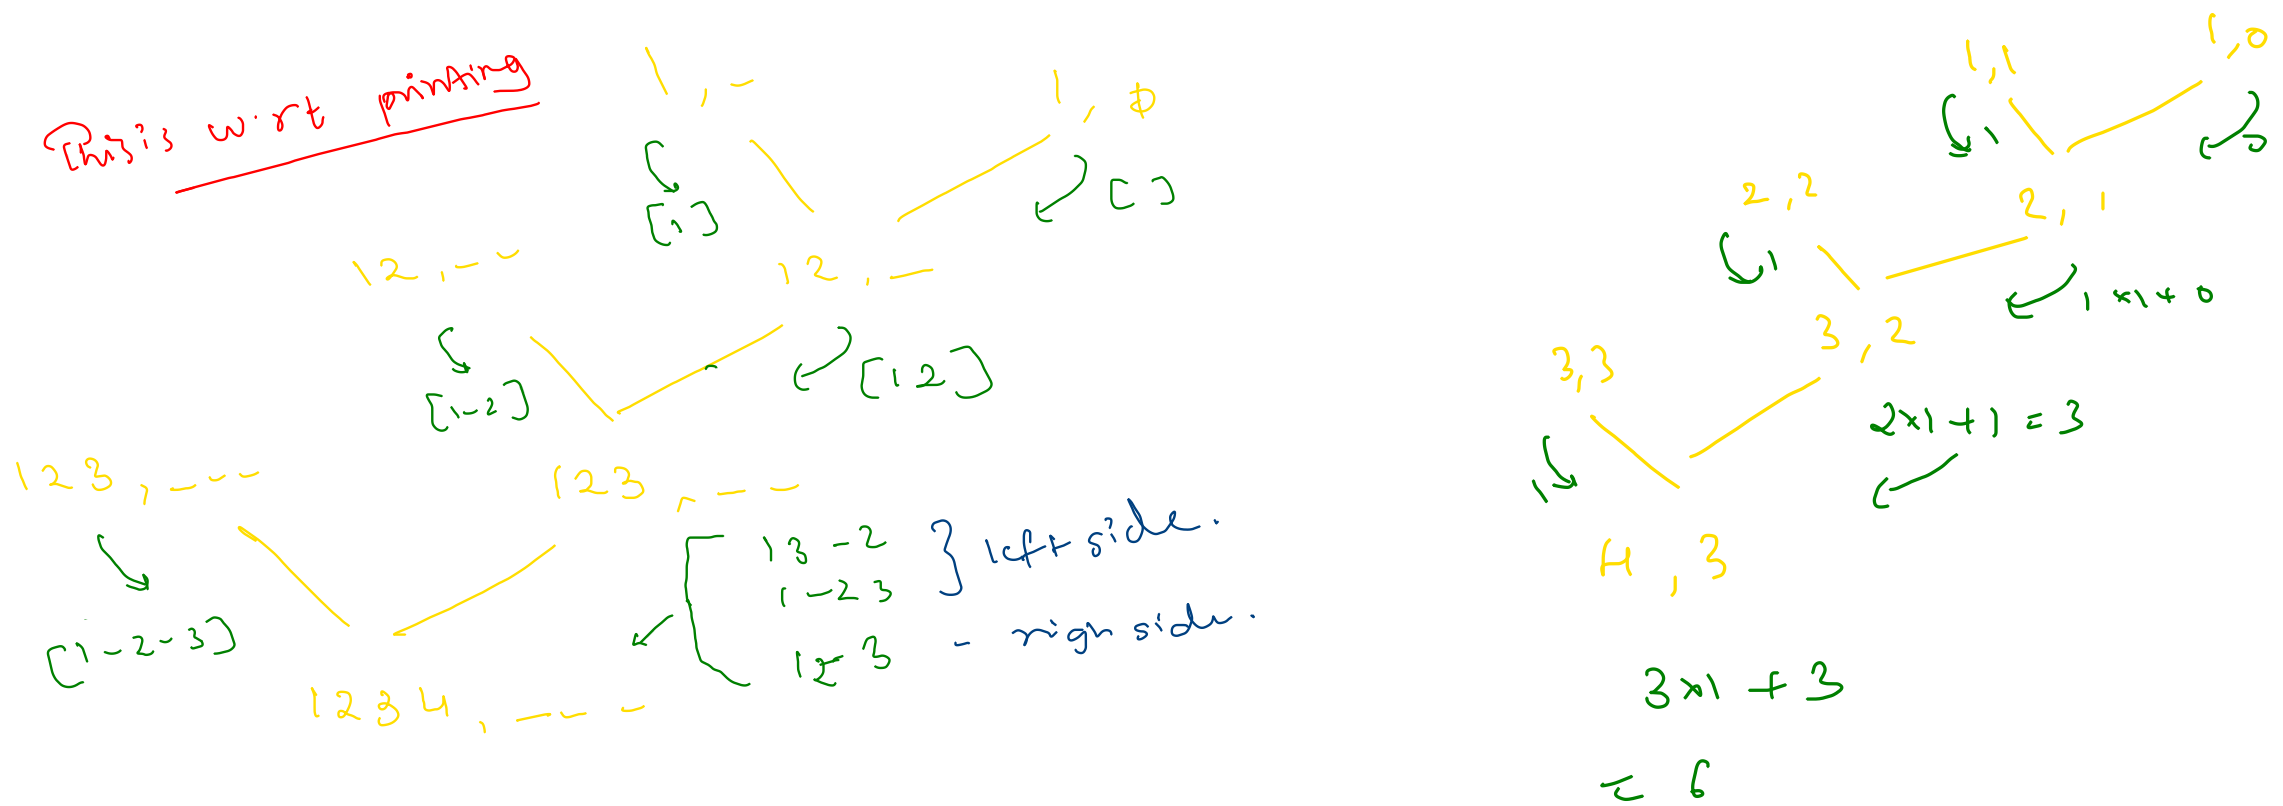 This is w.r.t printing
1 , -
1 , 0
[1]
[ ]
12 , - -
12 , -
[1-2]
[12]
123 , - - -
123 , - -
[1-2-3]
13 - 2
1 - 23
} left side.
12-3 - righ side.
1234 , - - -
1,1
1,0
1
0
2,2
2,1
1
1 x 1 + 0
3,3
3,2
1
2x1 + 1 = 3
4,3
3x1 + 3
= 6